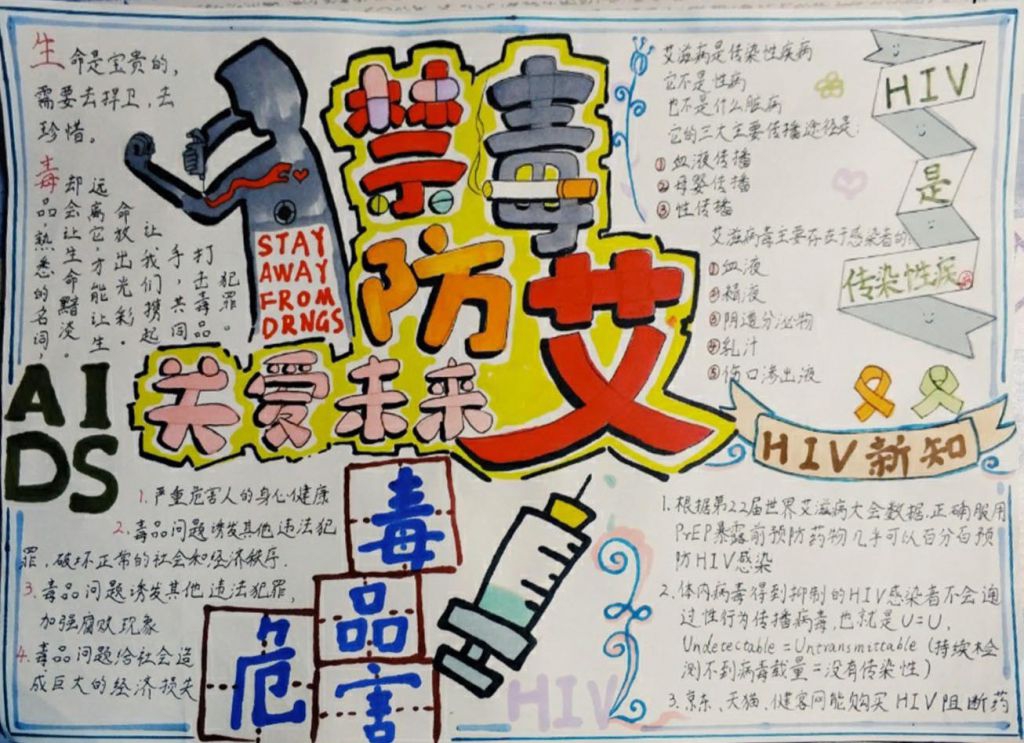 生命是宝贵的，
需要去捍卫、去
珍惜。
毒品，熟悉的名词，
却会让生命黯淡。
远离它，才能让生
命放出光彩。
让我们携起
手，共同
打击毒品
犯罪。
STAY
AWAY
FROM
DRNGS
禁毒
防艾
关爱未来
AI
DS
艾滋病是传染性疾病
它不是性病
也不是什么脏病
它的三大主要传播途径是：
①血液传播
②母婴传播
③性传播
艾滋病毒主要存在于感染者的：
①血液
②精液
③阴道分泌物
④乳汁
⑤伤口渗出液
HIV
是
传染性疾
HIV新知
1.根据第22届世界艾滋病大会数据，正确服用
PrEP暴露前预防药物几乎可以百分百预
防HIV感染
2.体内病毒得到抑制的HIV感染者不会通
过性行为传播病毒，也就是U=U，
Undetectable=Untransmittable（持续检
测不到病毒载量=没有传染性）
3.京东、天猫、健客网能购买HIV阻断药
1.严重危害人的身心健康
2.毒品问题诱发其他违法犯
罪，破坏正常的社会和经济秩序.
3.毒品问题诱发其他违法犯罪，
加强腐败现象
4.毒品问题给社会造
成巨大的经济损失
毒
品
危害
HIV